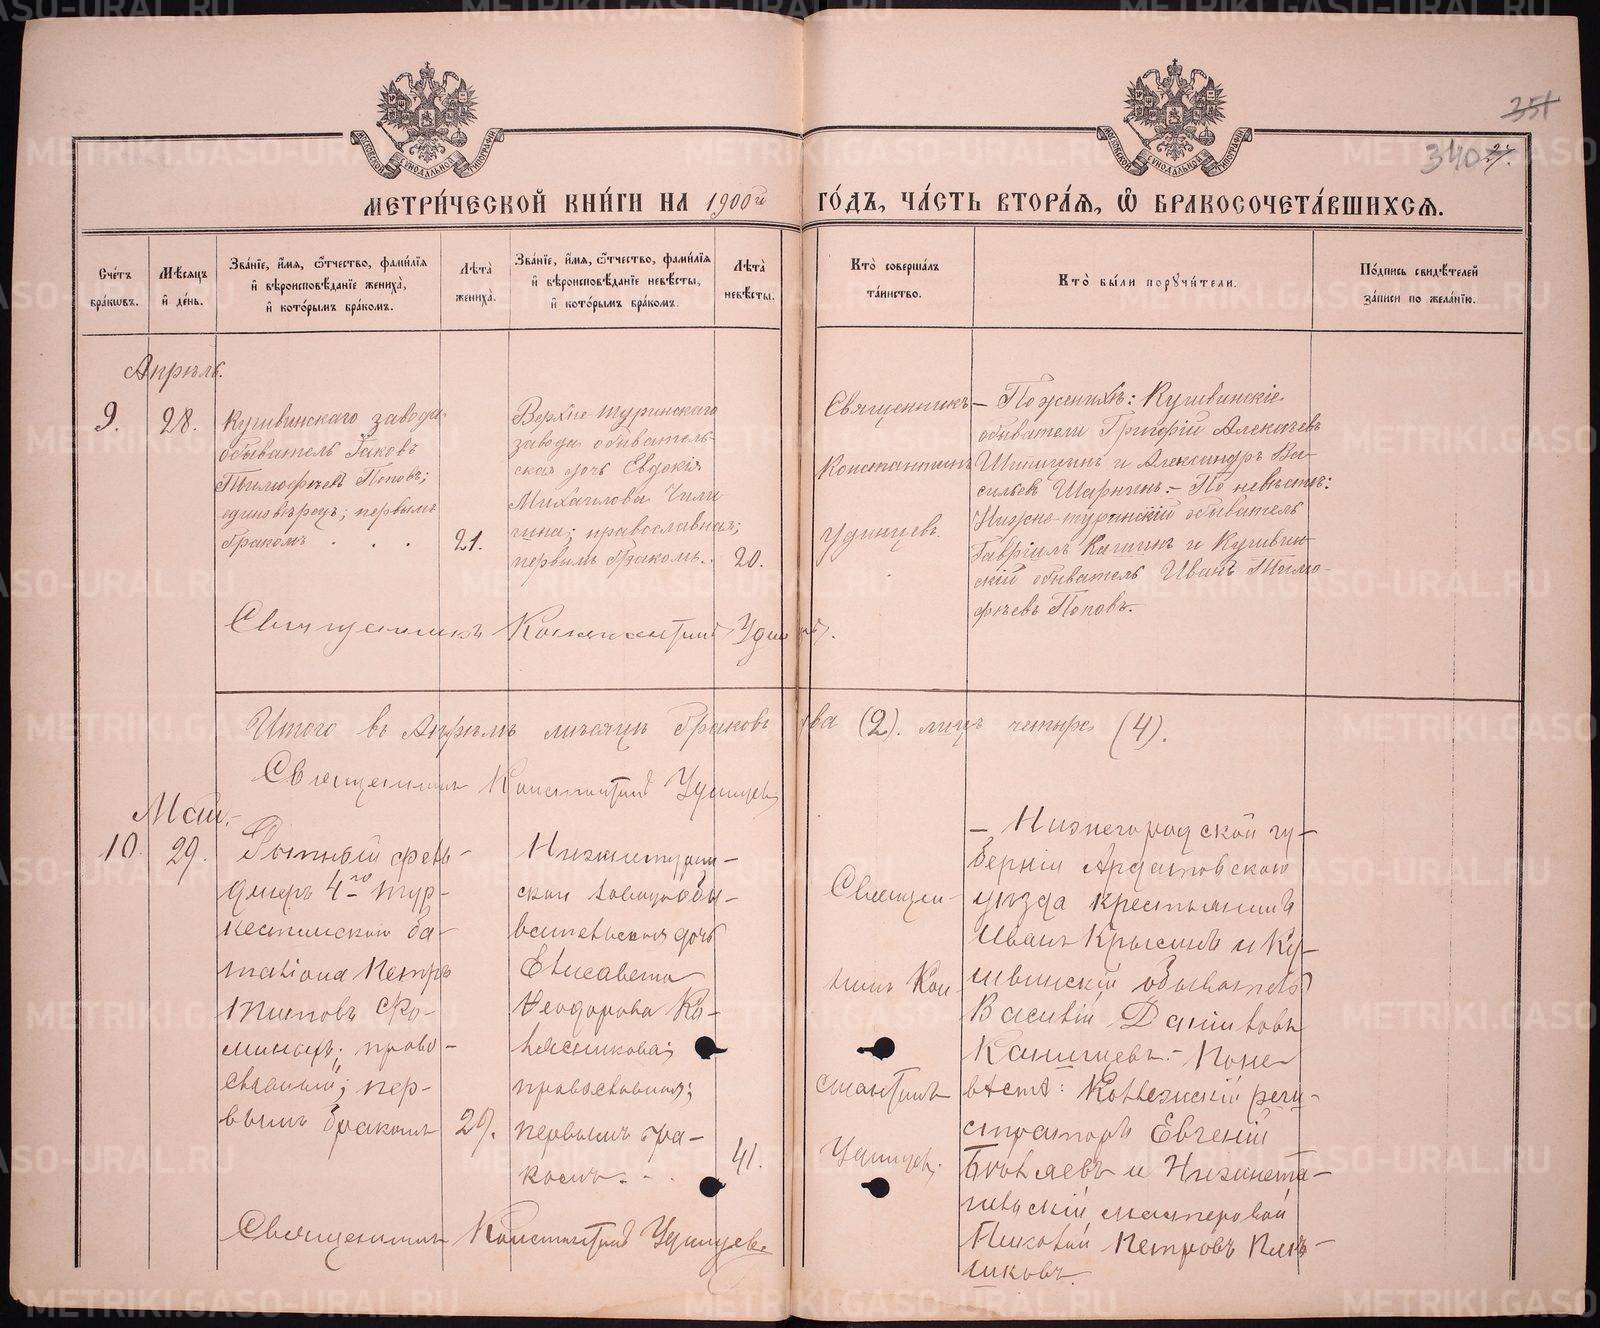 351
340
27.
МЕТРИ́ЧЕСКОЙ КНИ́ГИ НА 1900й ГО́ДЪ, ЧА́СТЬ ВТОРА́Я, Ѡ БРАКОСОЧЕТА́ВШИХСЯ.
Сче́тъ
бра́ковъ.
Мѣ́сяцъ
и де́нь.
Зва́ніе, и́мя, о́тчество, фами́лія
и вѣроисповѣ́даніе жениха̀,
и кото́рымъ бра́комъ.
Лѣта̀
жениха̀.
Зва́ніе, и́мя, о́тчество, фами́лія
и вѣроисповѣ́даніе невѣ́сты,
и кото́рымъ бра́комъ.
Лѣта̀
невѣ́сты.
Кто̀ соверша́лъ
та́инство.
Кто̀ бы́ли поручи́тели.
По́дпись свидѣ́телей
за́писи по жела́нію.
Апрѣль.
9.
28.
Кушвинскаго завода
обыватель Іаковъ
Тимофеевъ Поповъ;
единовѣрецъ; первымъ
бракомъ . . .
21.
Верхне-туринскаго
завода обыватель-
ская дочь Евдокія
Михаилова Чили-
гина; православная;
первымъ бракомъ..
20.
Священникъ
Константинъ
Удинцевъ.
– По женихѣ: Кушвинскіе
обыватели Григорій Алексѣевъ
и Александръ Ва-
сильевъ Шарнинъ. – По невѣстѣ:
Нижне-туринскій обыватель
Гавріилъ и Кушвин-
скій обыватель Иванъ Тимо-
фѣевъ Поповъ.
Священникъ Константинъ Удинцевъ.
Итого въ Апрѣлѣ мѣсяцѣ браковъ два (2). лицъ четыре (4).
Священникъ Константинъ Удинцевъ
Май.
10.
29.
Ротный фель-
дшеръ 4го Тур-
кестанскаго ба-
таліона Петръ
Титовъ Ско-
минъ; право-
славный; пер-
вымъ бракомъ
29.
Нижнетурин-
ская заводообы-
вательская дочь
Елисавета
Ѳеодорова Ко-
лясникова;
православная;
первымъ бра-
комъ. - .
41.
Священ-
никъ Кон
стантинъ
Удинцевъ.
– Нижегородской гу-
берніи Ардатовскаго
уѣзда крестьянинъ
Иванъ Крысинъ и Ку-
швинскій обыватель
Василій Даниловъ
Канищевъ. – По не-
вѣстѣ: Коллежскій реги-
страторъ Евгеній
Бѣляевъ и Нижнета-
гильскій мастеровой
Николай Петровъ
Священникъ Константинъ Удинцевъ.
METRIKI.GASO-URAL.RU